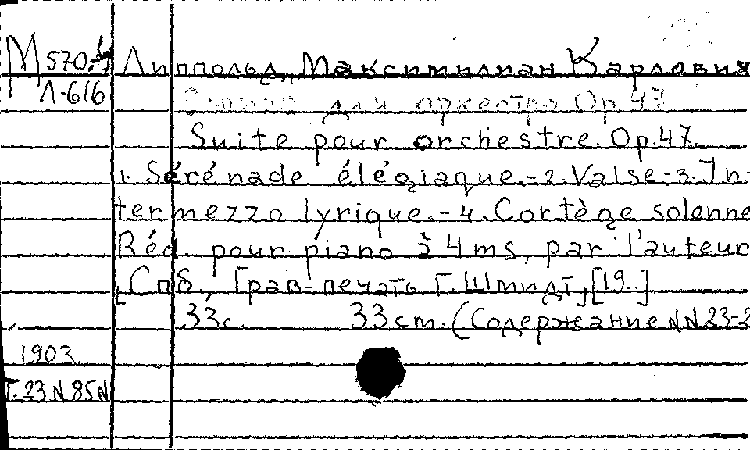 М 570.4 Липпольд, Максимилиан Карлович
Л-616
Сюита для оркестра Op. 47
Suite pour orchestre. Op. 47.
1. Sérénade élégiaque.-2. Valse.-3. In-
termezzo lyrique.-4. Cortège solenne
Réd. pour piano à 4 ms, par l'auteur
[Спб., Грав.-печать Г. Шмидт, [19..]
33с. 33 cm. (Содержание NN 23-2
1903
Т. 23 N 85 N